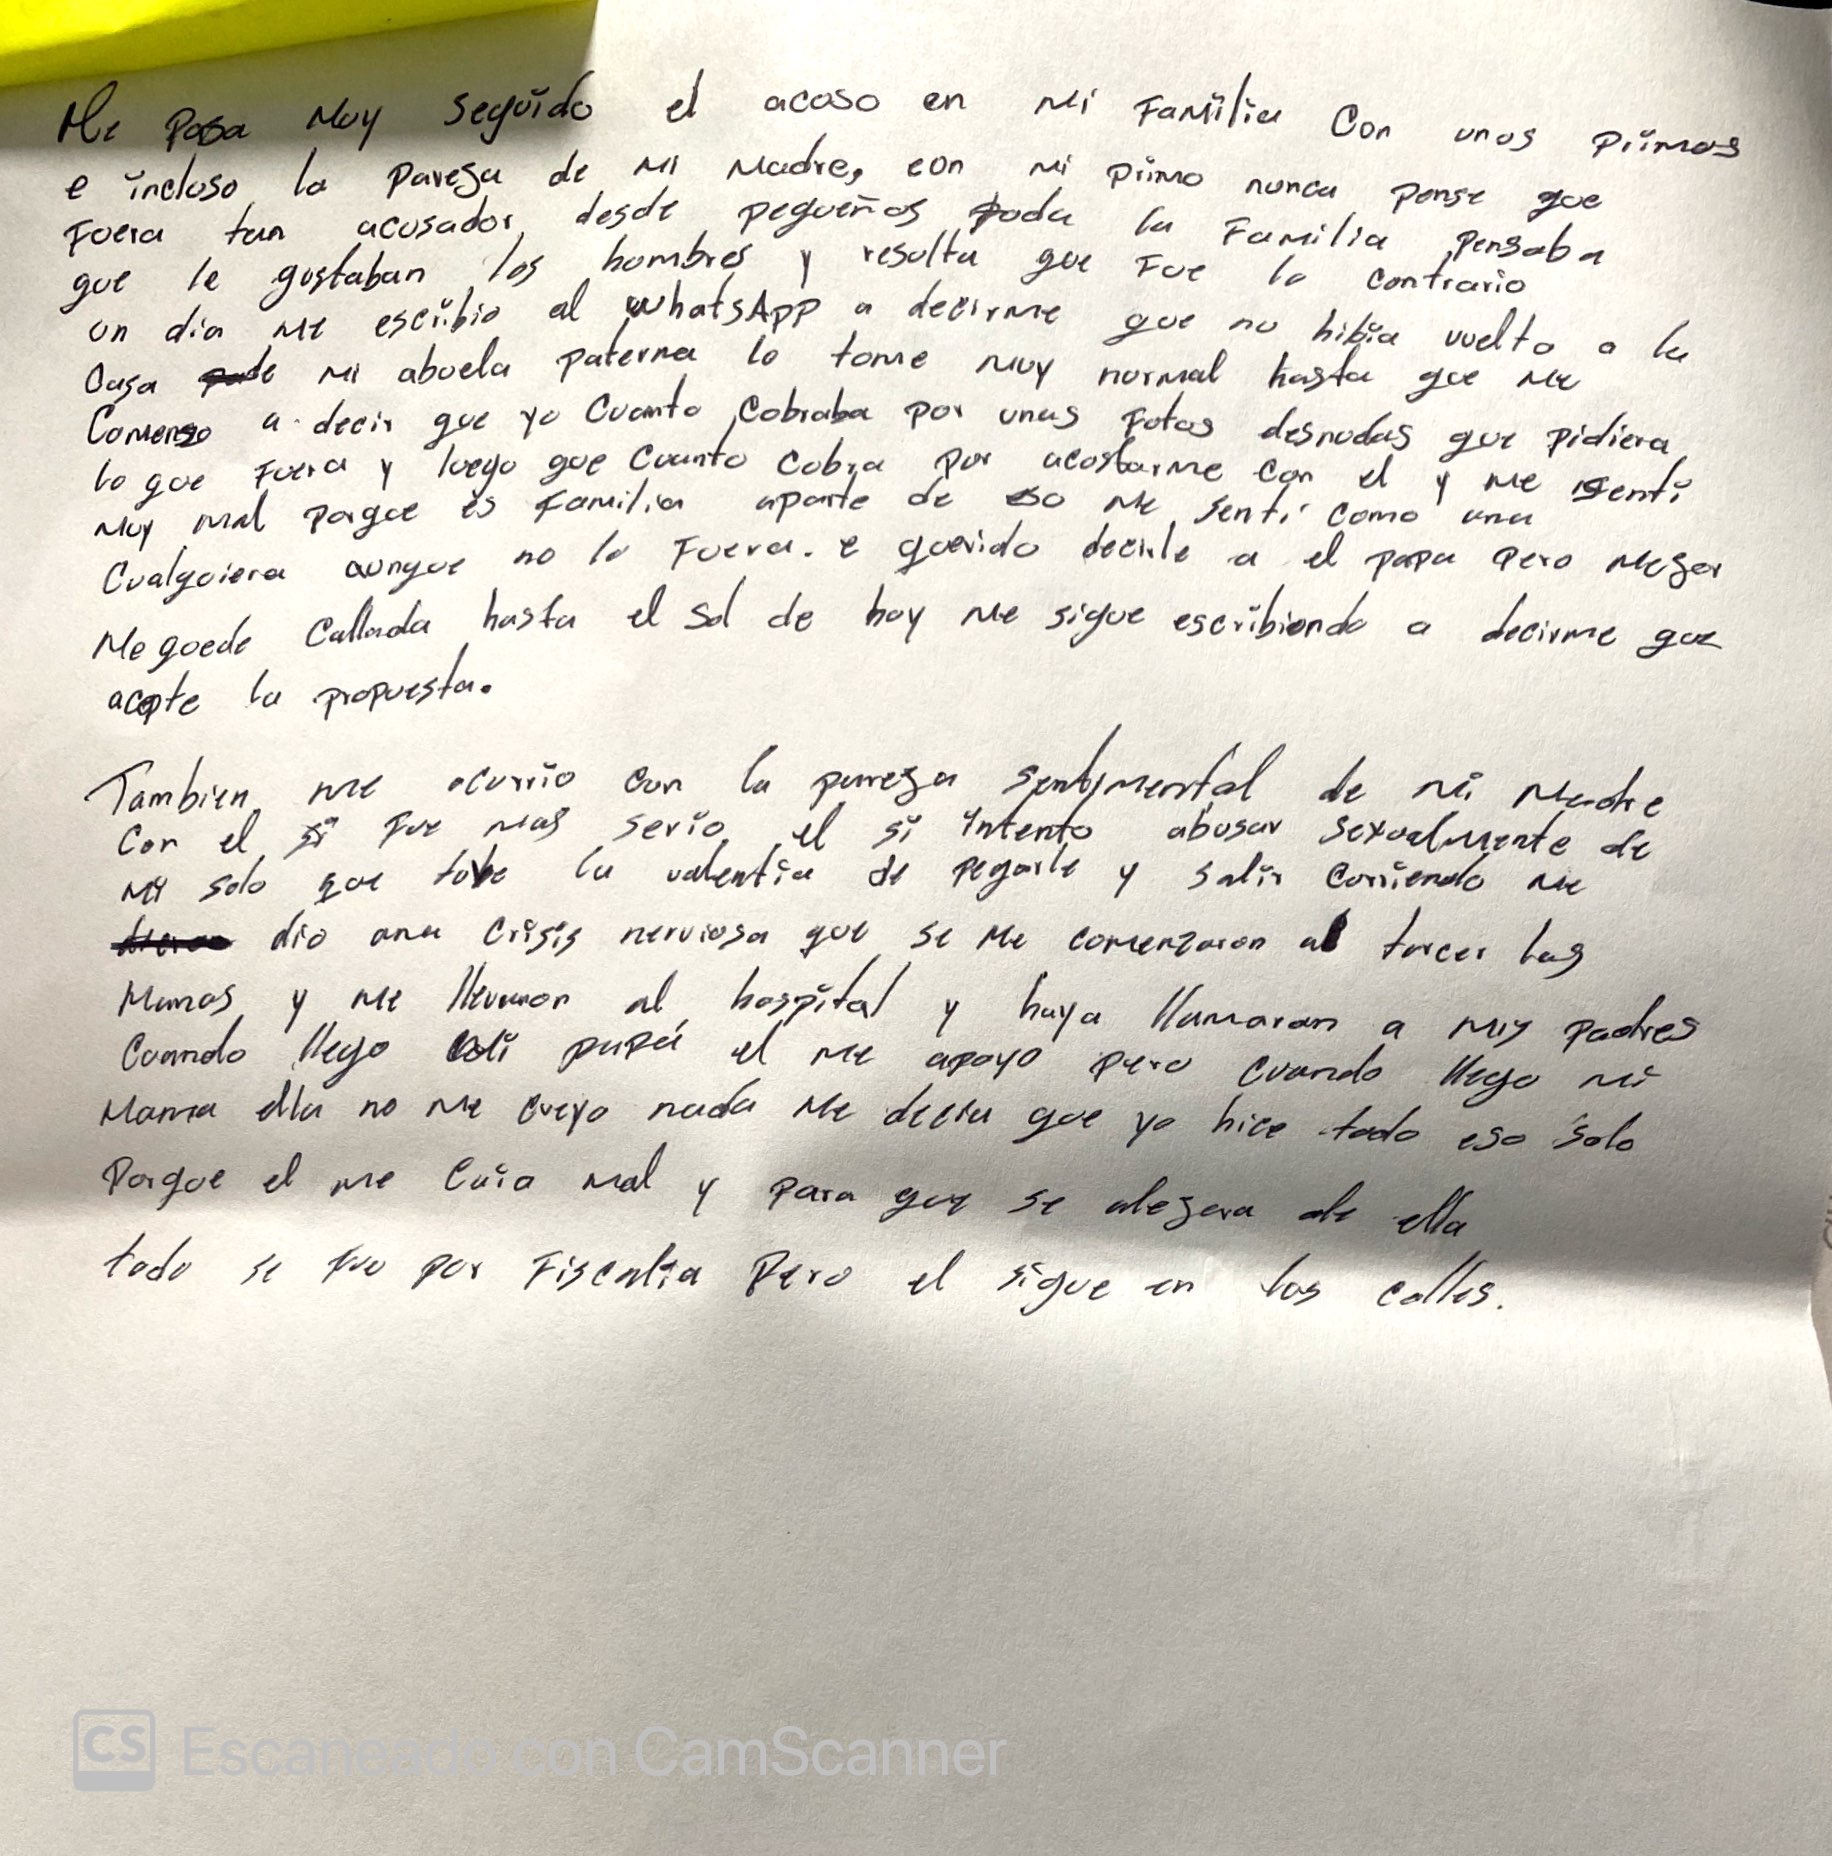 Me pasa muy seguido el acoso en mi familia con unos primos
e incluso la pareja de mi madre, con mi primo nunca pense que
fuera tan acosador, desde pequeños toda la familia pensaba
que le gustaban los hombres y resulta que fue lo contrario
un dia me escribio al WhatsApp a decirme que no hibia vuelto a la
casa de mi abuela paterna lo tome muy normal hasta que me
comenso a decir que yo cuanto cobraba por unas fotos desnudas que pidiera
lo que fuera y luego que cuanto cobra por acostarme con el y me senti
muy mal porque es familia aparte de eso me senti como una
cualquiera aunque no lo fuera. e querido decirle a el papa pero mejor
me quede callada hasta el sol de hoy me sigue escribiendo a decirme que
acepte la propuesta.
Tambien me ocurrio con la pareja sentimental de mi madre
con el si fue mas serio, el si intento abusar sexualmente de
mi solo que tube la valentia de pegarle y salir corriendo me
dio una crisis nerviosa que se me comenzaron a torcer las
manos y me llevaron al hospital y haya llamaron a mis padres
cuando llego mi papá el me apoyo pero cuando llego mi
mama ella no me creyo nada me decia que yo hice todo eso solo
porque el me caia mal y para que se alejara de ella
todo se fue por fiscalia pero el sigue en las calles.
CS Escaneado con CamScanner